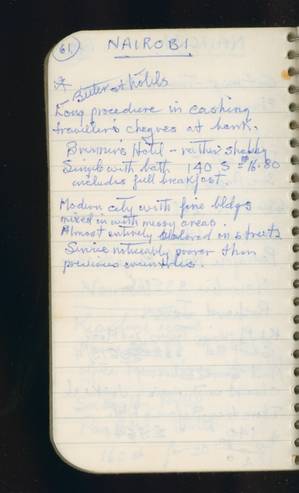 61 NAIROBI
Hotels
Long procedure in cashing
traveller's cheques at bank.
Brunner's Hotel - rather shabby
Single with bath 140 S = $16.80
includes full breakfast.
Modern city with fine bldgs
mixed in with messy areas.
Almost entirely colored on streets
Service noticeably poorer than
previous countries.